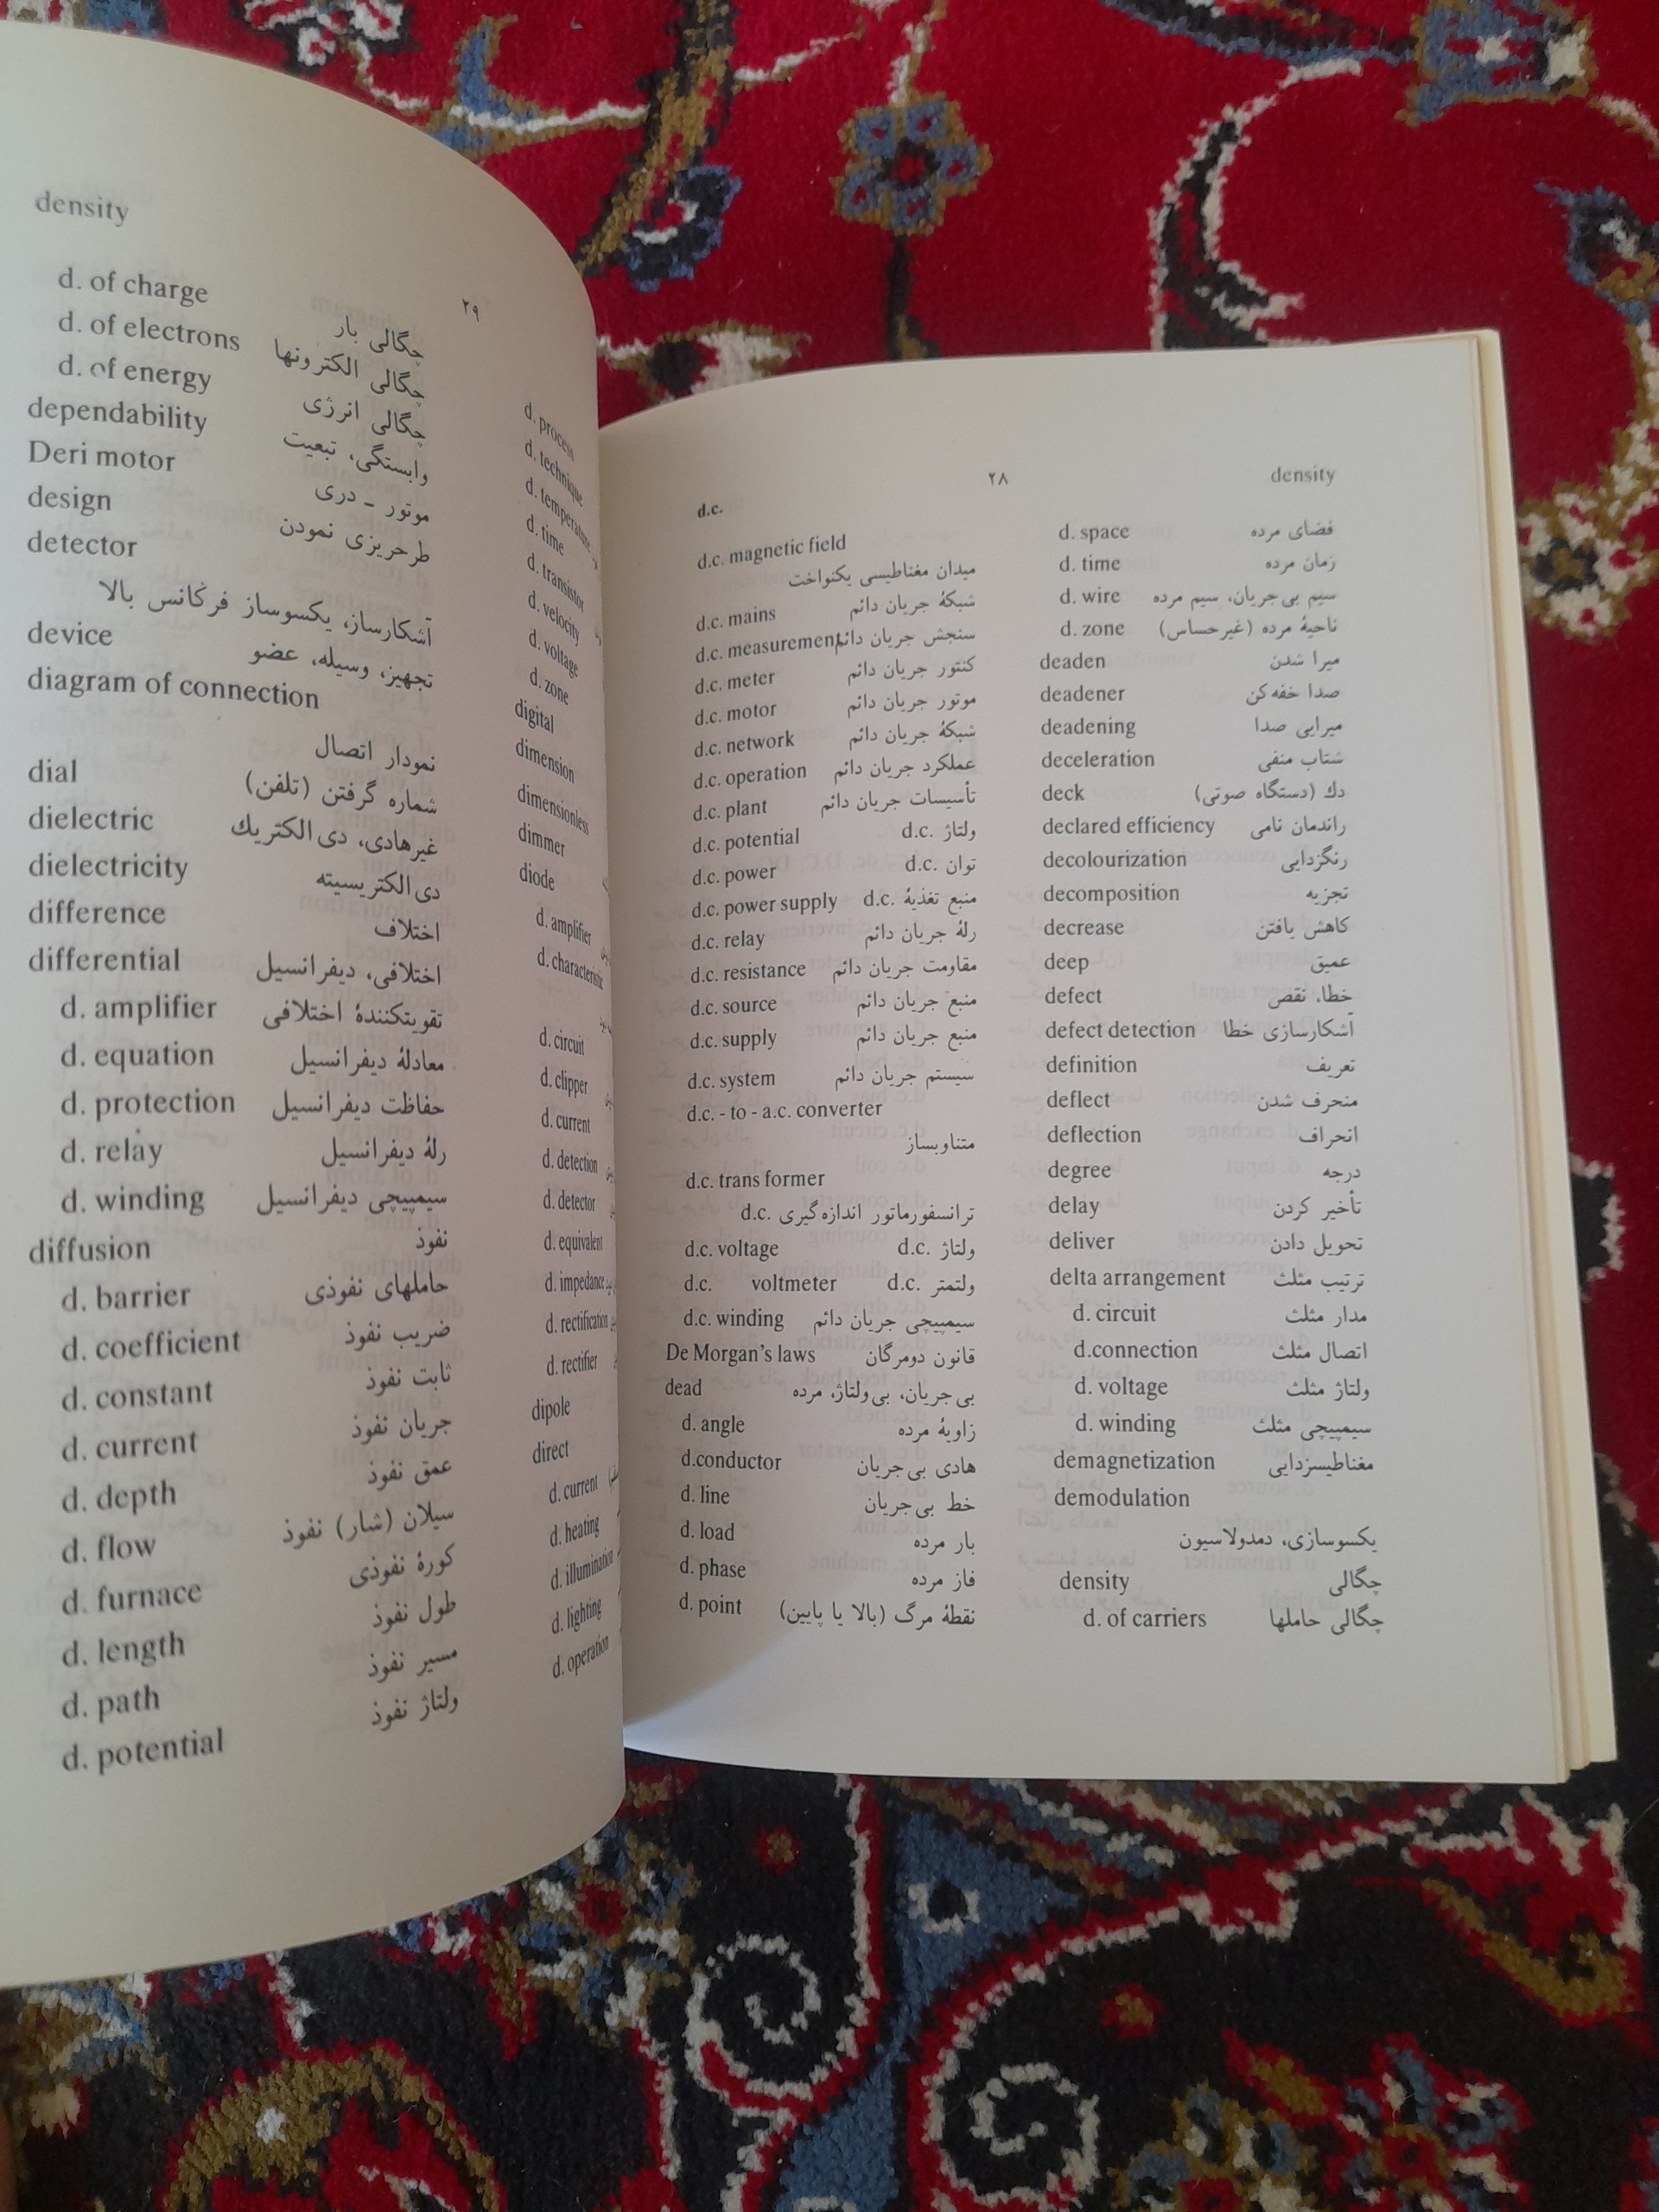 density
۲۹
d. of charge چگالی بار
d. of electrons چگالی الکترونها
d. of energy چگالی انرژی
dependability وابستگی، تبعیت
Deri motor موتور ـ دری
design طرحریزی نمودن
detector
آشکارساز، یکسوساز فرکانس بالا
device تجهیز، وسیله، عضو
diagram of connection
نمودار اتصال
dial شماره گرفتن (تلفن)
dielectric غیرهادی، دی‌الکتریك
dielectricity دی‌الکتریسیته
difference اختلاف
differential اختلافی، دیفرانسیل
d. amplifier تقویتکنندهٔ اختلافی
d. equation معادلهٔ دیفرانسیل
d. protection حفاظت دیفرانسیل
d. relay رلهٔ دیفرانسیل
d. winding سیمپیچی دیفرانسیل
diffusion نفوذ
d. barrier حاملهای نفوذی
d. coefficient ضریب نفوذ
d. constant ثابت نفوذ
d. current جریان نفوذ
d. depth عمق نفوذ
d. flow سیلان (شار) نفوذ
d. furnace کورهٔ نفوذی
d. length طول نفوذ
d. path مسیر نفوذ
d. potential ولتاژ نفوذ
d. process
d. technique
d. temperature
d. time
d. transistor
d. velocity
d. voltage
d. zone
digital
dimension
dimensionless
dimmer
diode
d. amplifier
d. characteristic
d. circuit
d. clipper
d. current
d. detection
d. detector
d. equivalent
d. impedance
d. rectification
d. rectifier
dipole
direct
d. current
d. heating
d. illumination
d. lighting
d. operation
d.c.
۲۸
density
d.c. magnetic field
میدان مغناطیسی یکنواخت
d.c. mains شبکهٔ جریان دائم
d.c. measurement سنجش جریان دائم
d.c. meter کنتور جریان دائم
d.c. motor موتور جریان دائم
d.c. network شبکهٔ جریان دائم
d.c. operation عملکرد جریان دائم
d.c. plant تأسیسات جریان دائم
d.c. potential ولتاژ d.c.
d.c. power توان d.c.
d.c. power supply منبع تغذیهٔ d.c.
d.c. relay رلهٔ جریان دائم
d.c. resistance مقاومت جریان دائم
d.c. source منبع جریان دائم
d.c. supply منبع جریان دائم
d.c. system سیستم جریان دائم
d.c. - to - a.c. converter
متناوبساز
d.c. trans former
ترانسفورماتور اندازه‌گیری d.c.
d.c. voltage ولتاژ d.c.
d.c. voltmeter ولتمتر d.c.
d.c. winding سیمپیچی جریان دائم
De Morgan's laws قانون دومرگان
dead بی‌جریان، بی‌ولتاژ، مرده
d. angle زاویهٔ مرده
d.conductor هادی بی‌جریان
d. line خط بی‌جریان
d. load بار مرده
d. phase فاز مرده
d. point نقطهٔ مرگ (بالا یا پایین)
d. space فضای مرده
d. time زمان مرده
d. wire سیم بی‌جریان، سیم مرده
d. zone ناحیهٔ مرده (غیرحساس)
deaden میرا شدن
deadener صدا خفه‌کن
deadening میرایی صدا
deceleration شتاب منفی
deck دك (دستگاه صوتی)
declared efficiency راندمان نامی
decolourization رنگزدایی
decomposition تجزیه
decrease کاهش یافتن
deep عمیق
defect خطا، نقص
defect detection آشکارسازی خطا
definition تعریف
deflect منحرف شدن
deflection انحراف
degree درجه
delay تأخیر کردن
deliver تحویل دادن
delta arrangement ترتیب مثلث
d. circuit مدار مثلث
d.connection اتصال مثلث
d. voltage ولتاژ مثلث
d. winding سیمپیچی مثلث
demagnetization مغناطیسزدایی
demodulation
یکسوسازی، دمدولاسیون
density چگالی
d. of carriers چگالی حاملها